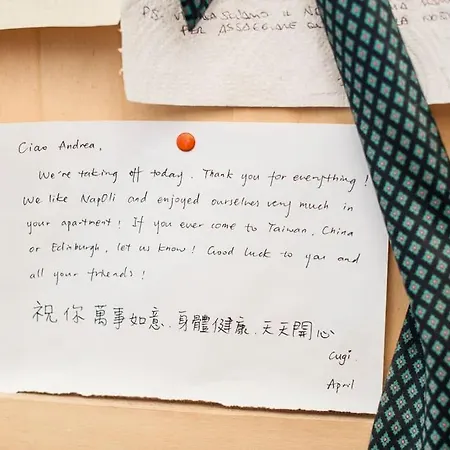 PS.
PER ASSAGGIARE
Ciao Andrea,
We're taking off today. Thank you for everything!
We like Napoli and enjoyed ourselves very much in
your apartment! If you ever come to Taiwan, China
or Edinburgh, let us know! Good luck to you and
all your friends!
祝你萬事如意.身體健康.天天開心
Cugi.
April